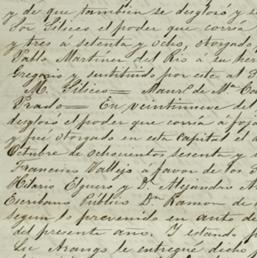 y de que tambien se desgloso y s
Sor Gelices el poder que corria
y tres a setenta y ocho, otorgado
Pablo Martinez del Rio a su her
Gregorio y sustituido por este al
M. Gelices = Maur. de Ma. Co
Prado = En veintinueve del
desgloso el poder que corria a foja
y fué otorgado en esta Capital el
Octubre de ochocientos sesenta y
Francisco Vallejo a favor de los
Hilario Elguero y D. Alejandro A
Escribano público Dn. Ramon de
segun lo prevenido en auto de
del presente año. Y estando p
Lic Arango le entregué dicho p